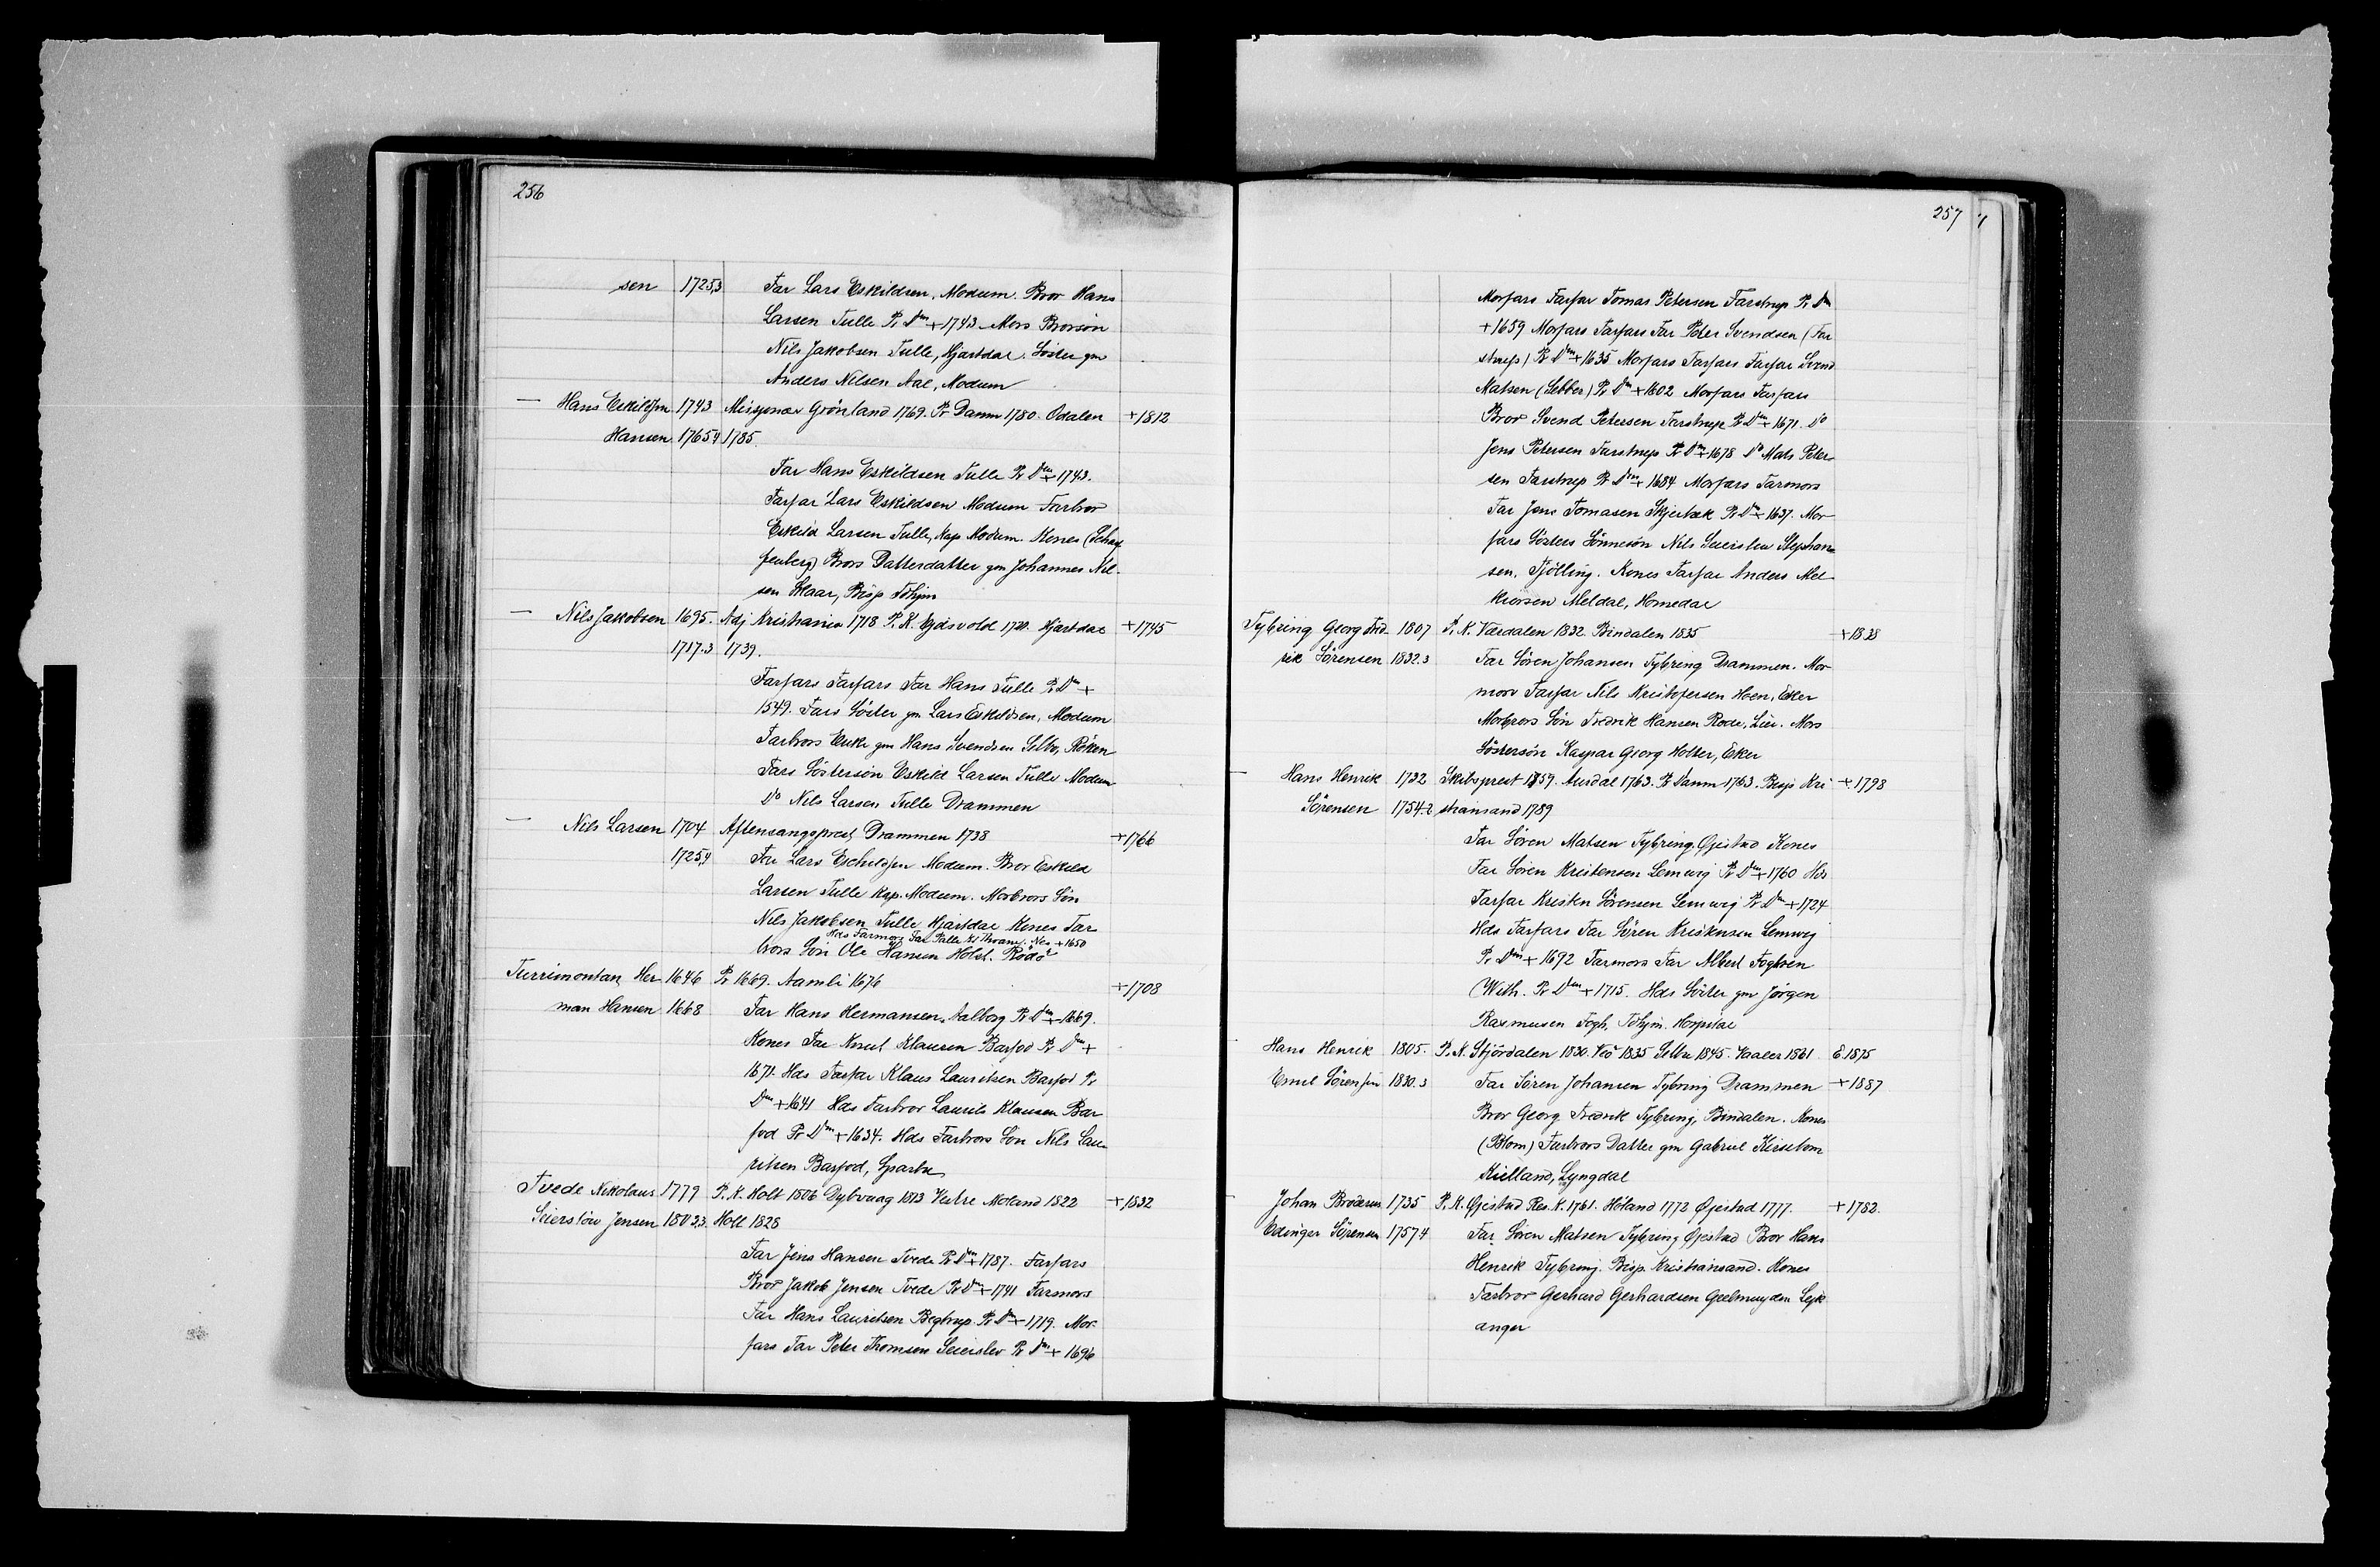 256
sen 1725,3 Far Lars Eskildsen, Modum. Bror Hans
Larsen Tulle Pr Dm + 1743 Mors Brorsön
Nils Jakobsen Tulle, Hjartdal. Söster gm
Anders Nilsen Aal, Modum
— Hans Eskildsen 1743 Missjonær Grönland 1769. Pr Danm 1780. Odalen + 1812
Hansen 1765,4 1785.
Far Hans Eskildsen Tulle Pr Dm + 1743.
Farfar Lars Eskildsen Modum Farbror
Eskild Larsen Tulle, Kap Modum. Kones (Schaf
fenberg) Brors Datterdatter gm Johannes Nil-
sen Skaar, Bisp Tdhjm
— Nils Jakobsen 1695. Adj Kristiania 1718 P. K. Ejdsvold 1720. Hjartdal + 1745
1717.3 1739.
Farfars Farfars Far Hans Tulle Pr Dm +
1549. Fars Söster gm Lars Eskildsen, Modum
Farbrors Enke gm Hans Svendsen Selbo, Röken
Fars Söstersön Eskild Larsen Tulle Modum
Do Nils Larsen Tulle Drammen
— Nils Larsen 1704 Aftensangsprest Drammen 1738 + 1766
1725,4 Far Lars Eschildsen Modum. Bror Eskild
Larsen Tulle Kap. Modum. Morbrors Sön
Nils Jakobsen Tulle Hjartdal Kones Far
Hds Farmors Far Palle Nes + 1650
brors Sön Ole Hansen Holst. Rödö
Turrimontan, Her 1646 Pr 1669. Aamli 1676 + 1708
man Hansen 1668 Far Hans Hermansen, Aalborg Pr Dm + 1669.
Kones Far Knud Klausen Barfod Pr Dm +
1671. Hds Farfar Klaus Lauritsen Barfod Pr
Dm + 1641 Hds Farbror Laurits Klausen Bar
fod Pr Dm + 1634. Hds Farbrors Sön Nils Lau-
ritsen Barfod, Sparbu
Tvede Nikolaus 1779 P. K. Holt 1806 Dybvaag 1813 Vestre Moland 1822 + 1832
Seierslöw Jensen 1803,3. Holt 1828
Far Jens Hansen Tvede Pr Dm + 1787. Farfars
Bror Jakob Jensen Tvede Pr Dm + 1741 Farmors
Far Hans Lauritsen Begtrup Pr Dm + 1719. Mor-
fars Far Peter Thomsen Seierslev Pr Dm + 1696
257
Morfars Farfar Tomas Petersen Farstrup Pr Dm
+ 1659 Morfars Farfars Far Peter Svendsen (Far
strup) Pr Dm + 1635 Morfars Farfars Farfar Svend
Matsen (Sebber) Pr Dm + 1602 Morfars Farfars
Bror Svend Petersen Farstrup Pr Dm + 1671. Do
Jens Petersen Farstrup Pr Dm + 1678 Do Mats Peter-
sen Farstrup Pr Dm + 1684 Morfars Farmors
Far Jens Tomasen Skjerbæk Pr Dm + 1637. Mor-
fars Sösters Sönnesön Nils Seierslew Stephan-
sen, Tjölling. Kones Farfar Anders Mel-
kiorsen Meldal, Homedal
Tybring Georg Fred- 1807 P. K. Værdalen 1832. Bindalen 1835 + 1838
rik Sörensen 1832.3 Far Sören Johansen Tybring Drammen. Mor-
mors Farfar Nils Kristofersen Hoen, Eker
Morbrors Sön Fredrik Hansen Rode, Lier. Mors
Söstersön Kaspar Georg Holter, Eker
— Hans Henrik 1732 Skibsprest 1759. Aurdal 1763. Pr Danm 1763. Bisp Kri + 1798
Sörensen 1754.2 stiansand 1789
Far Sören Matsen Tybring Øjestad Kones
Far Sören Kristensen Lemwig Pr Dm + 1760 Hds
Farfar Kristen Sörensen Lemwig Pr Dm + 1724
Hds Farfars Far Sören Kristensen Lemwig
Pr Dm + 1692 Farmors Far Albert
(With. Pr Dm + 1715. Hds Söster gm Jörgen
Rasmusen Fogh, Tdhjm. Hospital
— Hans Henrik 1805. P. K. Stjördalen 1830. Veö 1835 Selbu 1845. Vaaler 1861 E 1875
Emil Sörensen 1830.3 Far Sören Johansen Tybring Drammen + 1887
Bror Georg Fredrik Tybring, Bindalen. Kones
(Blom) Farbrors Datter gm Gabriel Kirsebom
Kielland, Lyngdal
— Johan Brodersen 1735 P. K. Øjestad Res. K. 1761. Höland 1772 Øjestad 1777. + 1782.
Edinger Sörensen 1757,4 Far Sören Matsen Tybring Øjestad Bror Hans
Henrik Tybring. Bisp. Kristiansand. Kones
Farbror Gerhard Gerhardsen Geelmuyden Lejk-
anger